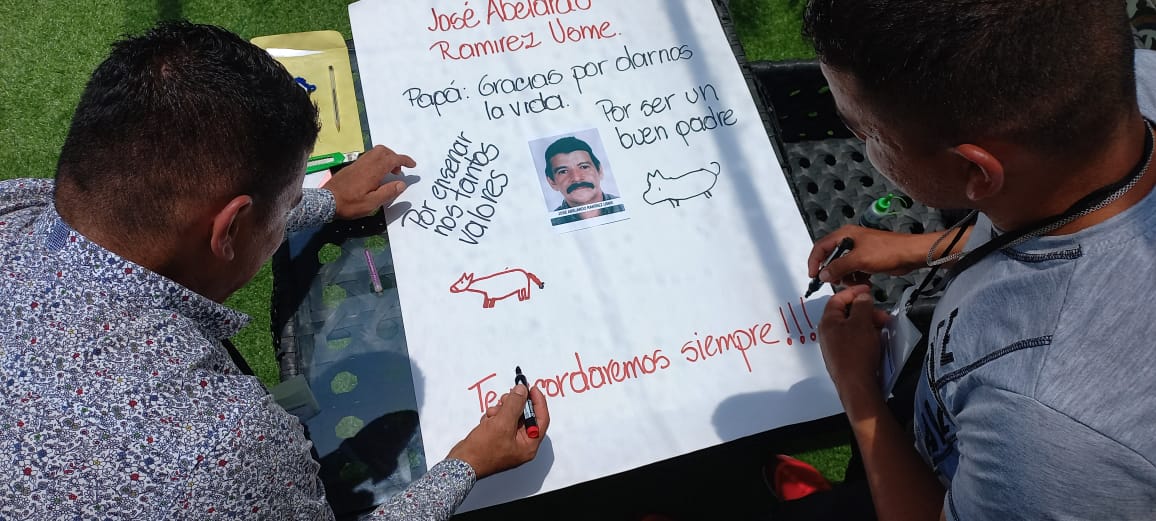 José Abelardo
Ramirez Usme.
Papá: Gracias por darnos
la vida.
Por ser un
buen padre
Por enseñar
nos tantos
valores
JOSÉ ABELARDO RAMÍREZ USME
Te recordaremos siempre!!!